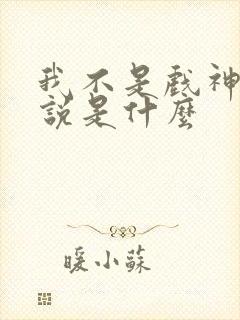 我不是戲神
說是什麼
暖小蘇